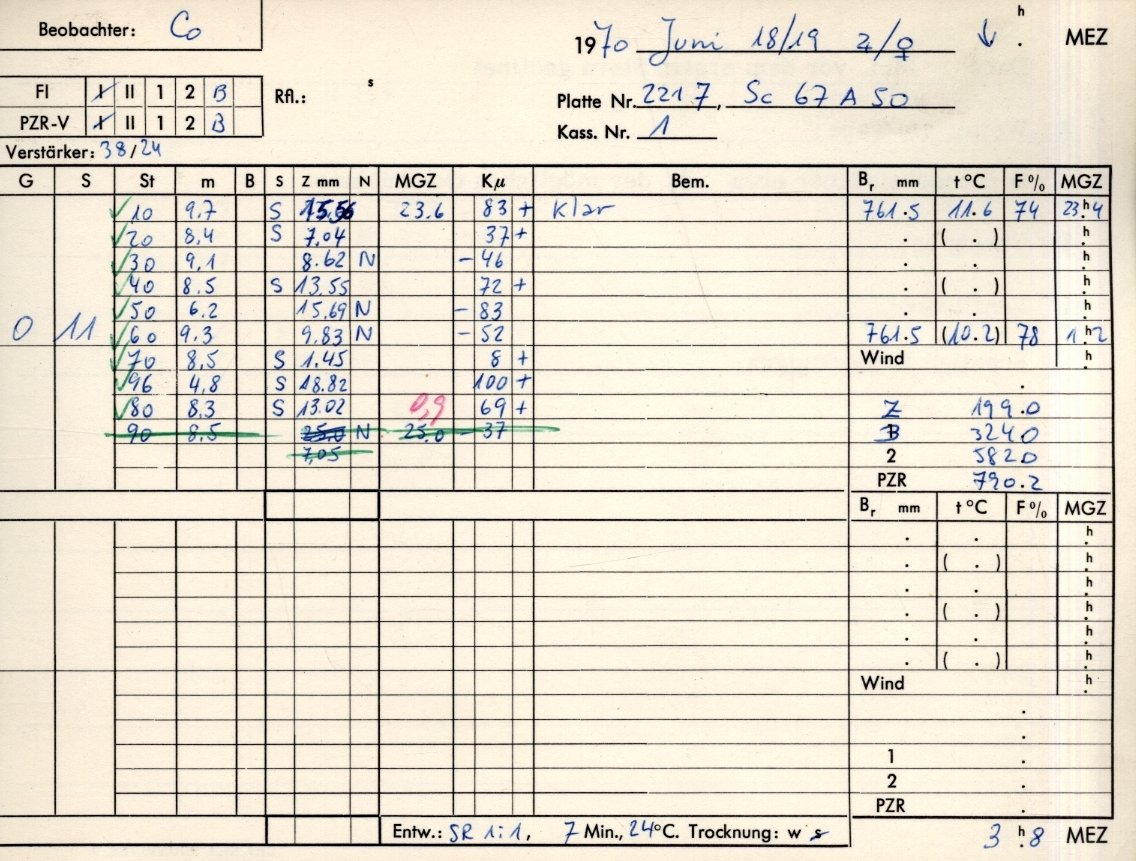 Beobachter: Co
1970 Juni 18/19 ♃/♀ ↓ h . MEZ
FI I II 1 2 B
Rfl.: s
Platte Nr. 2217, Sc 67 A 50
PZR-V I II 1 2 B
Kass. Nr. 1
Verstärker: 38/24
G S St m B S Z mm N MGZ Kμ Bem. Br mm t °C F % MGZ
✓10 9.7 S 15.56 23.6 83 + klar 761.5 11.6 74 23.h4
✓20 8,4 S 7.04 37+ . ( . ) h
✓30 9,1 8.62 N - 46 . . h
✓40 8.5 S 13.55 72 + . ( . ) h
✓50 6.2 15.69 N - 83 . . h
0 11 ✓60 9.3 9.83 N - 52 761.5 (10.2) 78 1 h2
✓70 8,5 S 1.45 8 + Wind h
✓96 4,8 S 18.82 100+ .
✓80 8,3 S 13.02 0,9 69 + Z 199.0
90 8.5 25.0 N 25.0 - 37 1 3240
7,05 2 5820
PZR 790.2
Br mm t °C F % MGZ
. . h
. ( . ) h
. . h
. ( . ) h
. . h
. ( . ) h
Wind h
.
.
1 .
2 .
PZR .
Entw.: SR 1:1, 7 Min., 24°C. Trocknung: w s 3 h.8 MEZ